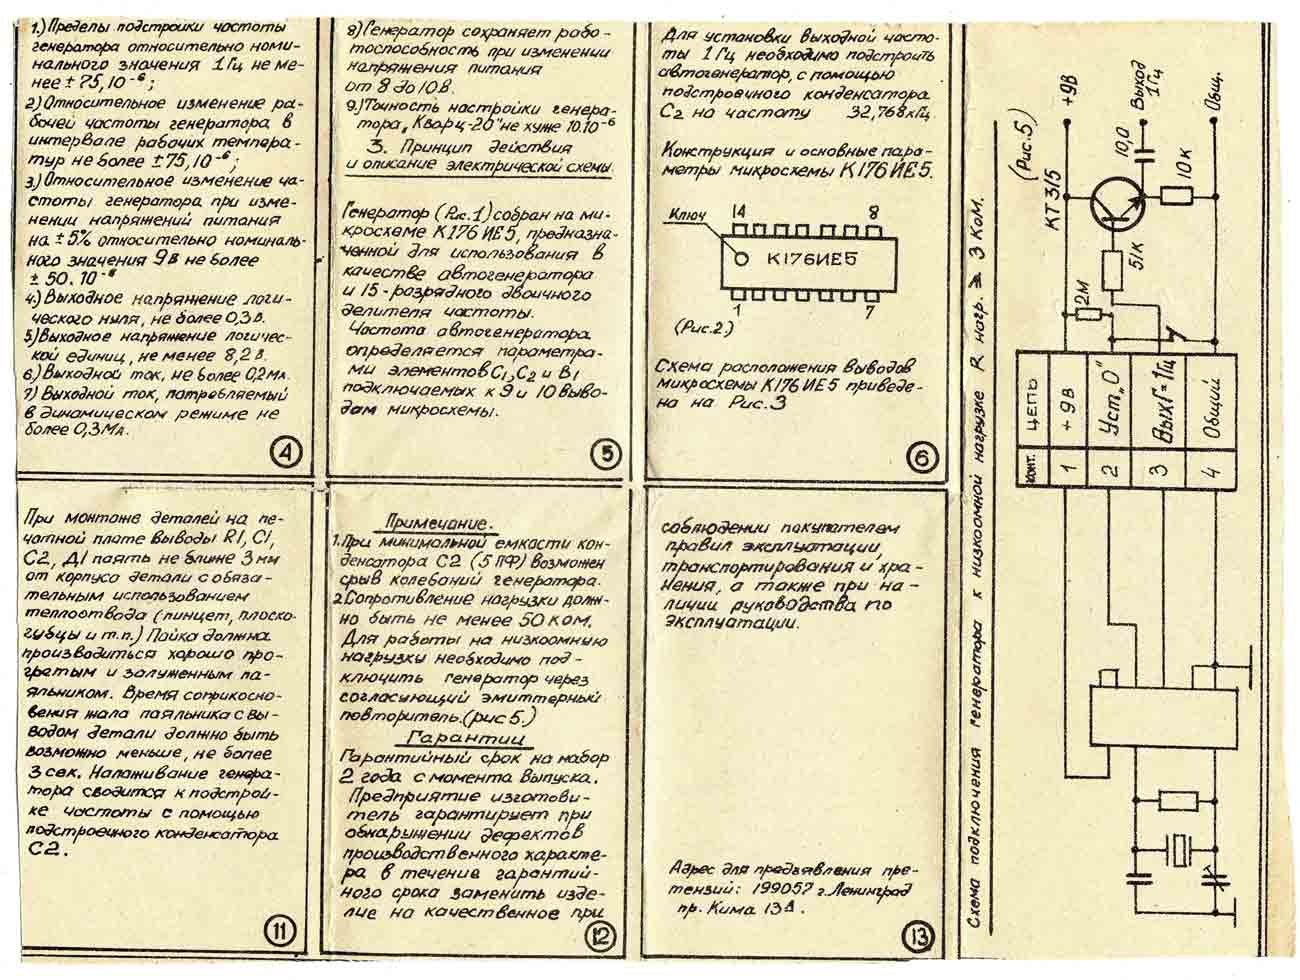 1.) Пределы подстройки частоты
генератора относительно номи-
нального значения 1 Гц не ме-
нее ± 75,10⁻⁶;
2.) Относительное изменение ра-
бочей частоты генератора в
интервале рабочих темпера-
тур не более ± 75,10⁻⁶;
3.) Относительное изменение ча-
стоты генератора при изме-
нении напряжений питания
на ± 5% относительно номиналь-
ного значения 9 в не более
± 50.10⁻⁶
4.) Выходное напряжение логи-
ческого нуля, не более 0,3 в.
5.) Выходное напряжение логичес-
кой единиц, не менее 8,2 в.
6.) Выходной ток, не более 0,2 мА.
7) Выходной ток, потребляемый
в динамическом режиме не
более 0,3 мА.
4
8) Генератор сохраняет рабо-
тоспособность при изменении
напряжения питания
от 8 до 10 В.
9.) Точность настройки генера-
тора „Кварц-20" не хуже 10.10⁻⁶
3. Принцип действия
и описание электрической схемы.
Генератор (Рис.1) собран на ми-
кросхеме К176 ИЕ5, предназна-
ченной для использования в
качестве автогенератора
и 15-разрядного двоичного
делителя частоты.
Частота автогенератора
определяется параметра-
ми элементов С1, С2 и В1
подключаемых к 9 и 10 выво-
дам микросхемы.
5
Для установки выходной часто-
ты 1 Гц необходимо подстроить
автогенератор, с помощью
подстроечного конденсатора
С2 на частоту 32,768 кГц.
Конструкция и основные пара-
метры микросхемы К176 ИЕ5.
Ключ
14
8
К176ИЕ5
1
7
(Рис.2.)
Схема расположения выводов
микросхемы К176 ИЕ5 приведе-
на на Рис. 3
6
При монтаже деталей на пе-
чатной плате выводы R1, С1,
С2, Д1 паять не ближе 3 мм
от корпуса детали с обяза-
тельным использованием
теплоотвода (пинцет, плоско-
губцы и т.п.) Пайка должна
производиться хорошо про-
гретым и залуженным па-
яльником. Время соприкосно-
вения жала паяльника с вы-
водом детали должно быть
возможно меньше, не более
3 сек. Налаживание генера-
тора сводится к подстрой-
ке частоты с помощью
подстроечного конденсатора
С2.
11
Примечание.
1. При минимальной емкости кон-
денсатора С2 (5 ПФ) возможен
срыв колебаний генератора.
2. Сопротивление нагрузки долж-
но быть не менее 50 ком.
Для работы на низкоомную
нагрузку необходимо под-
ключить генератор через
согласующий эмиттерный
повторитель. (рис 5.)
Гарантии
Гарантийный срок на набор
2 года с момента выпуска.
Предприятие изготови-
тель гарантирует при
обнаружении дефектов
производственного характе-
ра в течение гарантий-
ного срока заменить изде-
лие на качественное при
12
соблюдении покупателем
правил эксплуатации,
транспортирования и хра-
нения, а также при на-
личии руководства по
эксплуатации.
Адрес для предъявления пре-
тензий: 199057 г. Ленинград
пр. Кима 13 А.
13
Схема подключения генератора к низкоомной нагрузке R нагр. ⩾ 3 Ком. (Рис. 5)
Конт. ЦЕПЬ
1 +9В
2 Уст„0"
3 ВыхF=1Гц
4 Общий
КТ 315
2М
51К
10К
10,0
+9В
Выход
1Гц
Общ.